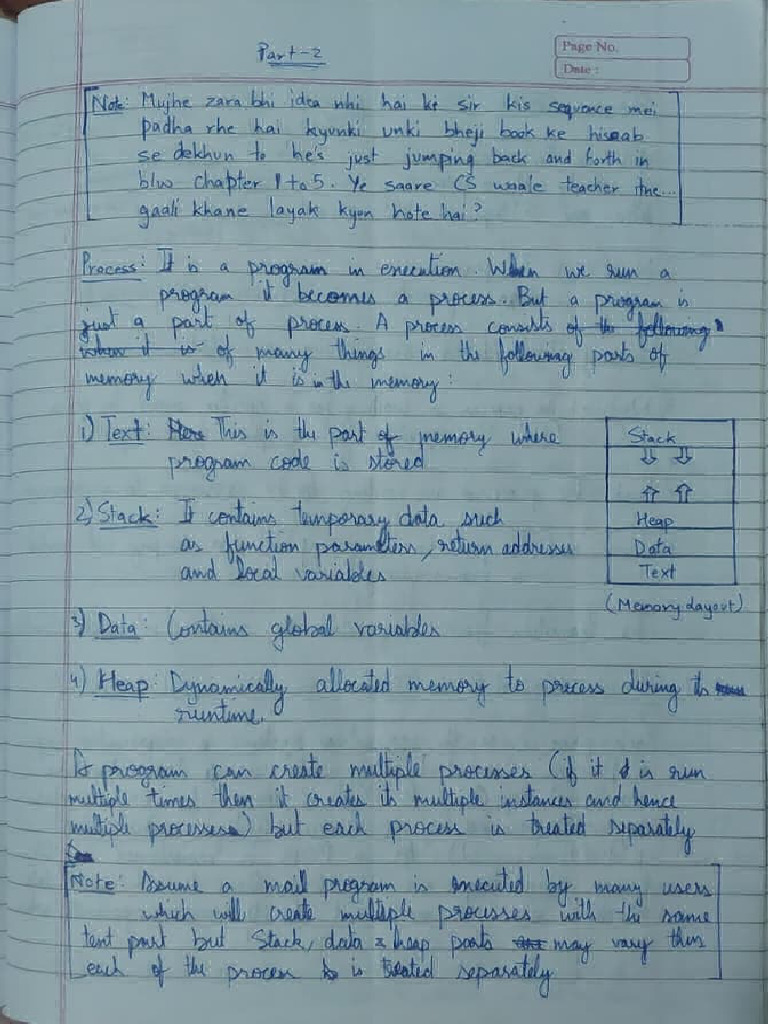 Part-2
Page No.
Date:
Note: Mujhe zara bhi idea nhi hai ki sir kis sequence mei
padha rhe hai kyunki unki bheji book ke hisaab
se dekhun to he's just jumping back and forth in
b/w chapter 1 to 5. Ye saare CS waale teacher itne...
gaali khane layak kyon hote hai?
Process: It is a program in execution. When we run a
program it becomes a process. But a program is
just a part of process. A process consists of the following
when it is of many things in the following parts of
memory when it is in the memory:
1) Text: Here This is the part of memory where
program code is stored
2) Stack: It contains temporary data such
as function parameters, return addresses
and local variables
Stack
⇩ ⇩
⇧ ⇧
Heap
Data
Text
(Memory layout)
3) Data: Contains global variables
4) Heap: Dynamically allocated memory to process during its
runtime.
A program can create multiple processes (if it is run
multiple times then it creates its multiple instances and hence
multiple processes) but each process is treated separately
Note: Assume a mail program is executed by many users
which will create multiple processes with the same
text part but Stack, data & heap parts may vary thus
each of the process is treated separately